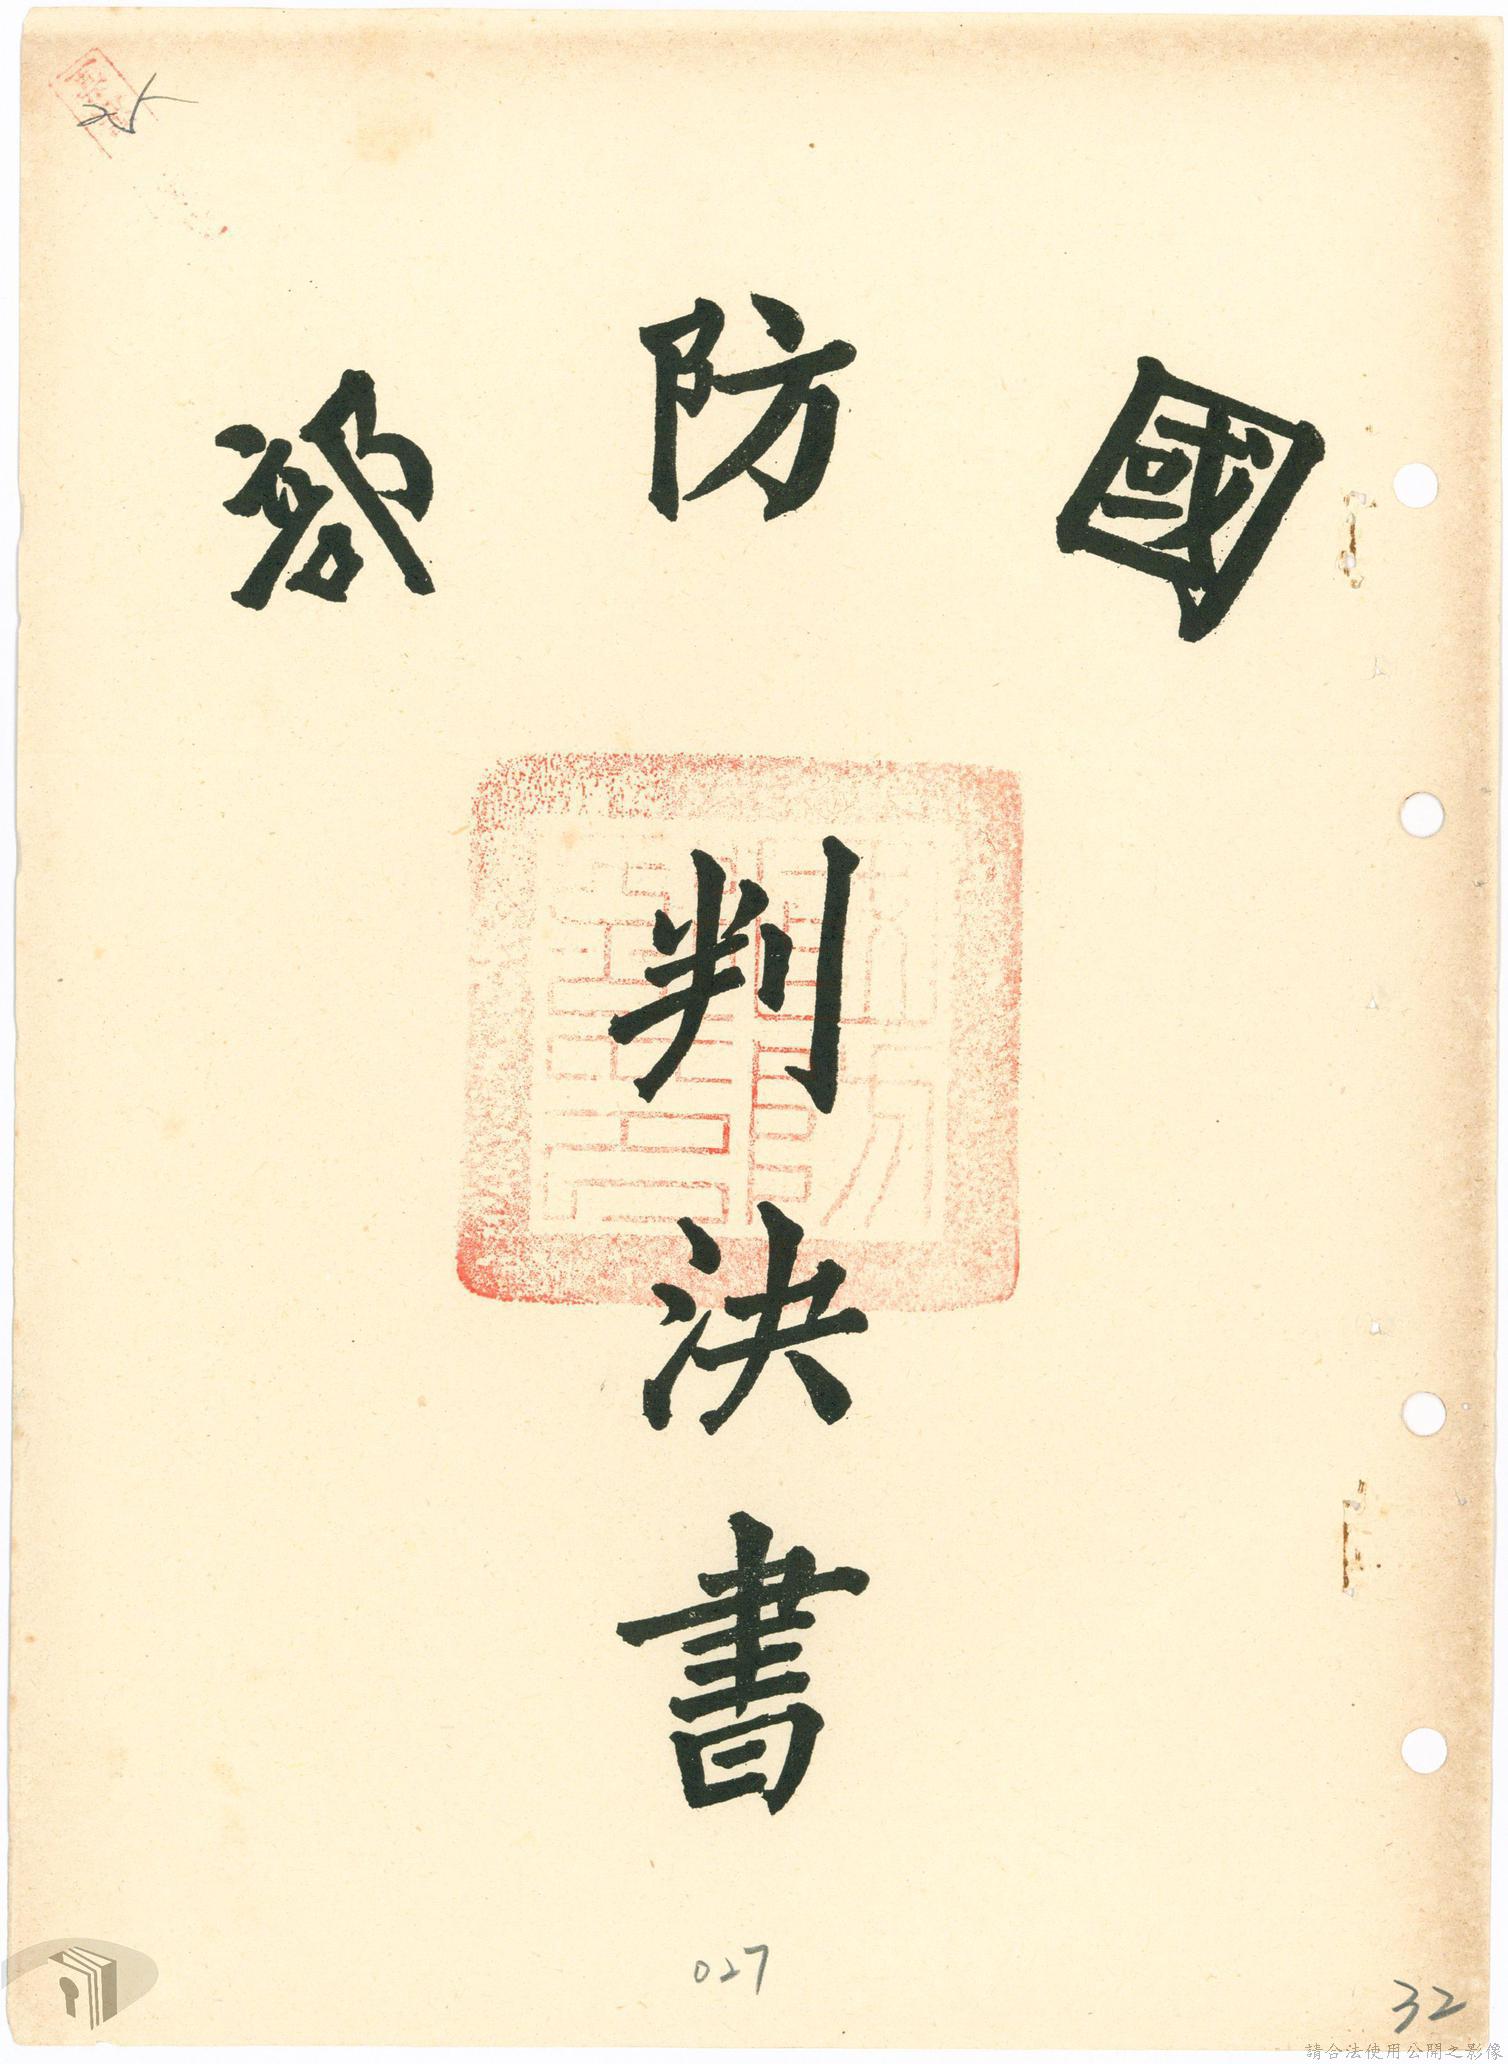 國防部
判
決
書
027
32
請合法使用公開之影像